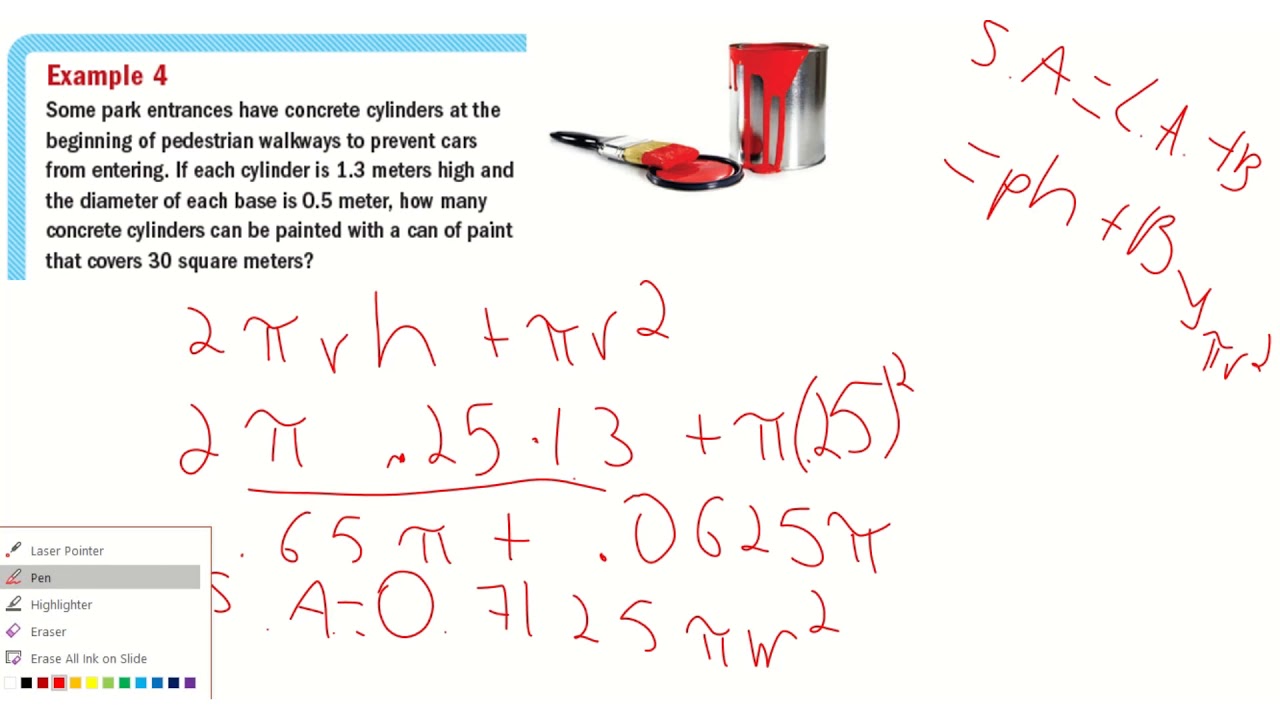 Example 4
Some park entrances have concrete cylinders at the
beginning of pedestrian walkways to prevent cars
from entering. If each cylinder is 1.3 meters high and
the diameter of each base is 0.5 meter, how many
concrete cylinders can be painted with a can of paint
that covers 30 square meters?
S.A=L.A.+B
=ph+B
πr²
2πrh+πr²
2π .25·1.3 +π(.25)²
.65π+.0625π
S.A.=0.7125πm²
Laser Pointer
Pen
Highlighter
Eraser
Erase All Ink on Slide